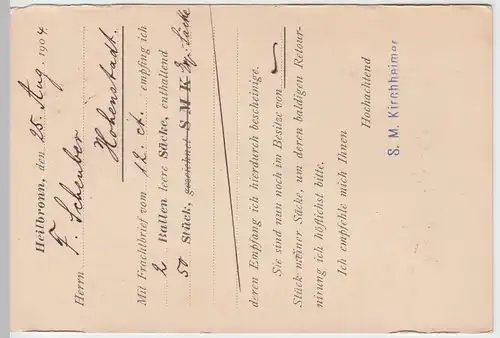 Heilbronn, den 25. Aug. 1904.
Herrn F. Scheuber
Hohenstadt.
Mit Frachtbrief vom 12. ct. empfing ich
2 Ballen leere Säcke, enthaltend
50 Stück, gezeichnet S M K Säcke
deren Empfang ich hierdurch bescheinige.
Sie sind nun noch im Besitze von
Stück meiner Säcke, um deren baldigen Retour-
nirung ich höflichst bitte.
Ich empfehle mich Ihnen
Hochachtend
S. M. Kirchheimer